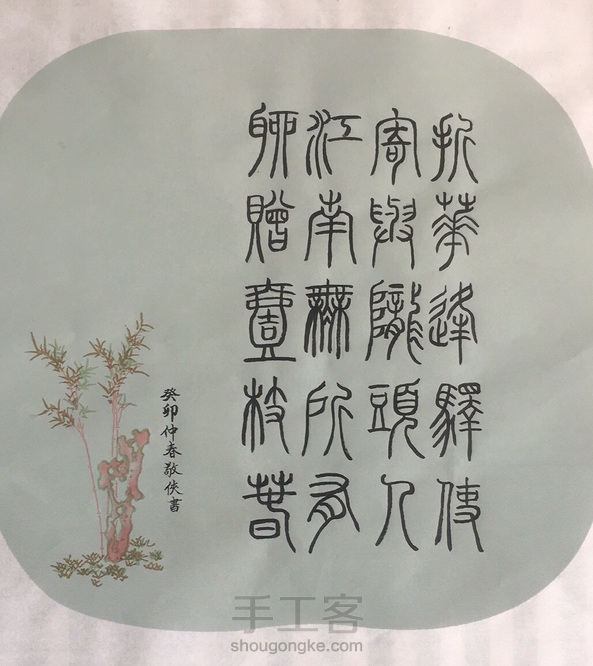 折華逢驛使
寄與隴頭人
江南無所有
聊贈壹枝春
癸卯仲春敬佚書
手工客
shougongke.com